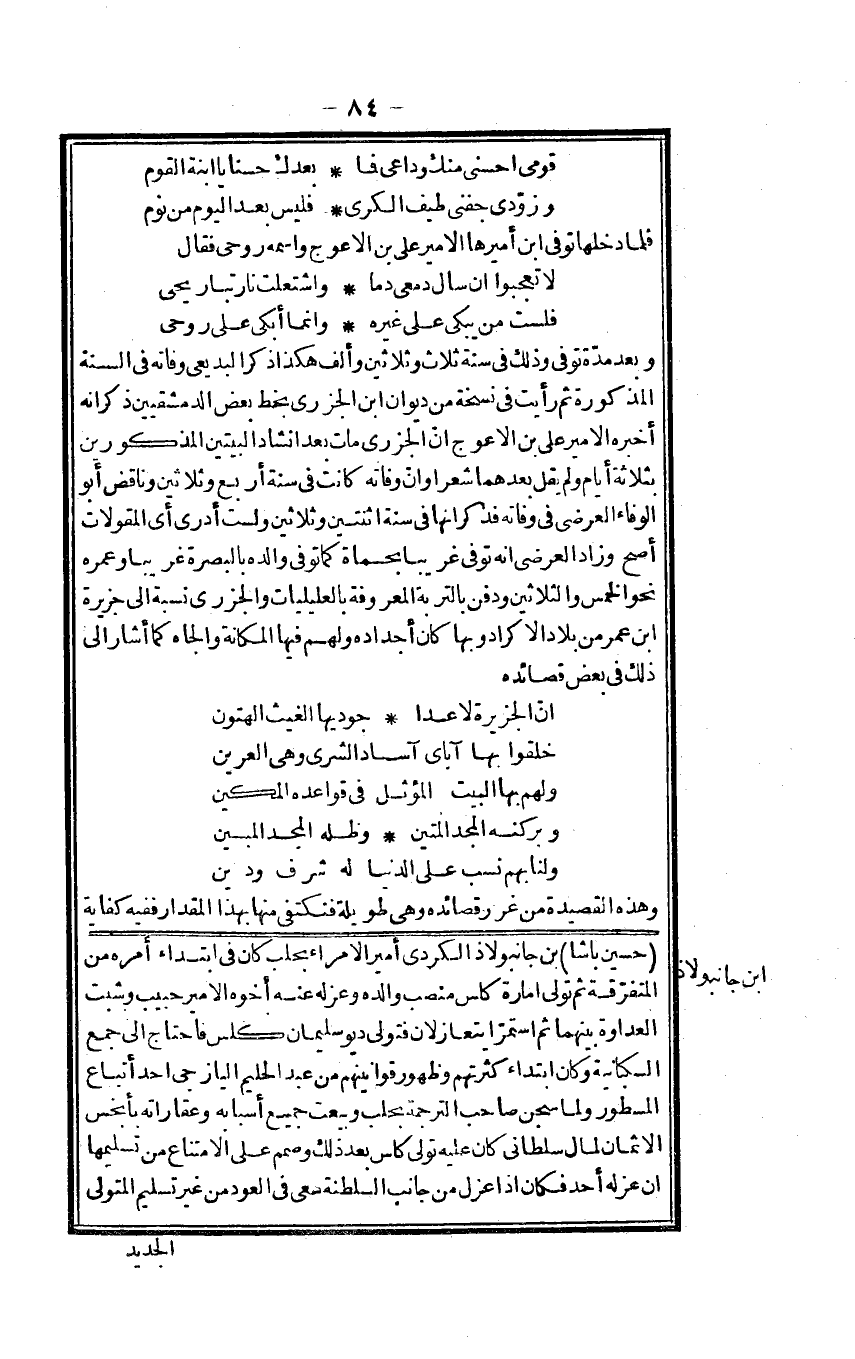 – ٨٤ –
قومى احسنى منك وداعى فما * بعدك حسنا يا ابنة القوم
وزوّدى جفنى طيف الكرى * فليس بعد اليوم من نوم
فلما دخلها توفى ابن أميرها الامير على بن الاعوج واسمه روحى فقال
لا تعجبوا ان سال دمعى دما * واشتعلت نار تباريحى
فلست من يبكى على غيره * وانما أبكى على روحى
وبعد مدّة توفى وذلك فى سنة ثلاث وثلاثين وألف هكذا ذكر البديعى وفاته فى السنة
المذكورة ثم رأيت فى نسخة من ديوان ابن الجزرى بخط بعض الدمشقيين ذكر انه
أخبره الامير على بن الاعوج انّ الجزرى مات بعد انشاد البيتين المذكورين
بثلاثة أيام ولم يقل بعدهما شعرا وانّ وفاته كانت فى سنة أربع وثلاثين وناقض أبو
الوفاء العرضى فى وفاته فذكر انها فى سنة اثنتين وثلاثين ولست أدرى أى المقولات
أصح وزاد العرضى انه توفى غريبا بحماة كما توفى والده بالبصرة غريبا وعمره
نحو الخمس والثلاثين ودفن بالتربة المعروفة بالعليليات والجزرى نسبة الى جزيرة
ابن عمر من بلاد الاكراد وبها كان أجداده ولهم فيها المكانة والجاه كما أشار الى
ذلك فى بعض قصائده
انّ الجزيرة لا عدا * جوديها الغيث الهتون
خلقوا بها آباى آساد الشرى وهى العرين
ولهم بها البيت المؤثل فى قواعده المكين
وبركنه المجد المتين * وظله المجد المبين
ولنا بهم نسب على الدنيا له شرف ودين
وهذه القصيدة من غرر قصائده وهى طويلة فنكتفى منها بهذا المقدار ففيه كفاية
(حسين باشا) بن جانبولاذ الكردى أمير الامراء بحلب كان فى ابتداء أمره من
ابن جانبولاذ
المتفرّقة ثم تولى امارة كلس منصب والده وعزله عنه أخوه الامير حبيب وشبت
العداوة بينهما ثم استمرّا يتعازلان فتولى ديو سليمان كلس فاحتاج الى جمع
السكبانية وكان ابتداء كثرتهم وظهور قوانينهم من عبد الحليم اليازجى احد أتباع
المسطور ولما سجن صاحب الترجمة بحلب وبيعت جميع أسبابه وعقاراته بأبخس
الاثمان لمال سلطانى كان عليه تولى كلس بعد ذلك وصمم على الامتناع من تسليمها
ان عزله أحد فكان اذا عزل من جانب السلطنة سعى فى العود من غير تسليم المتولى
الجديد